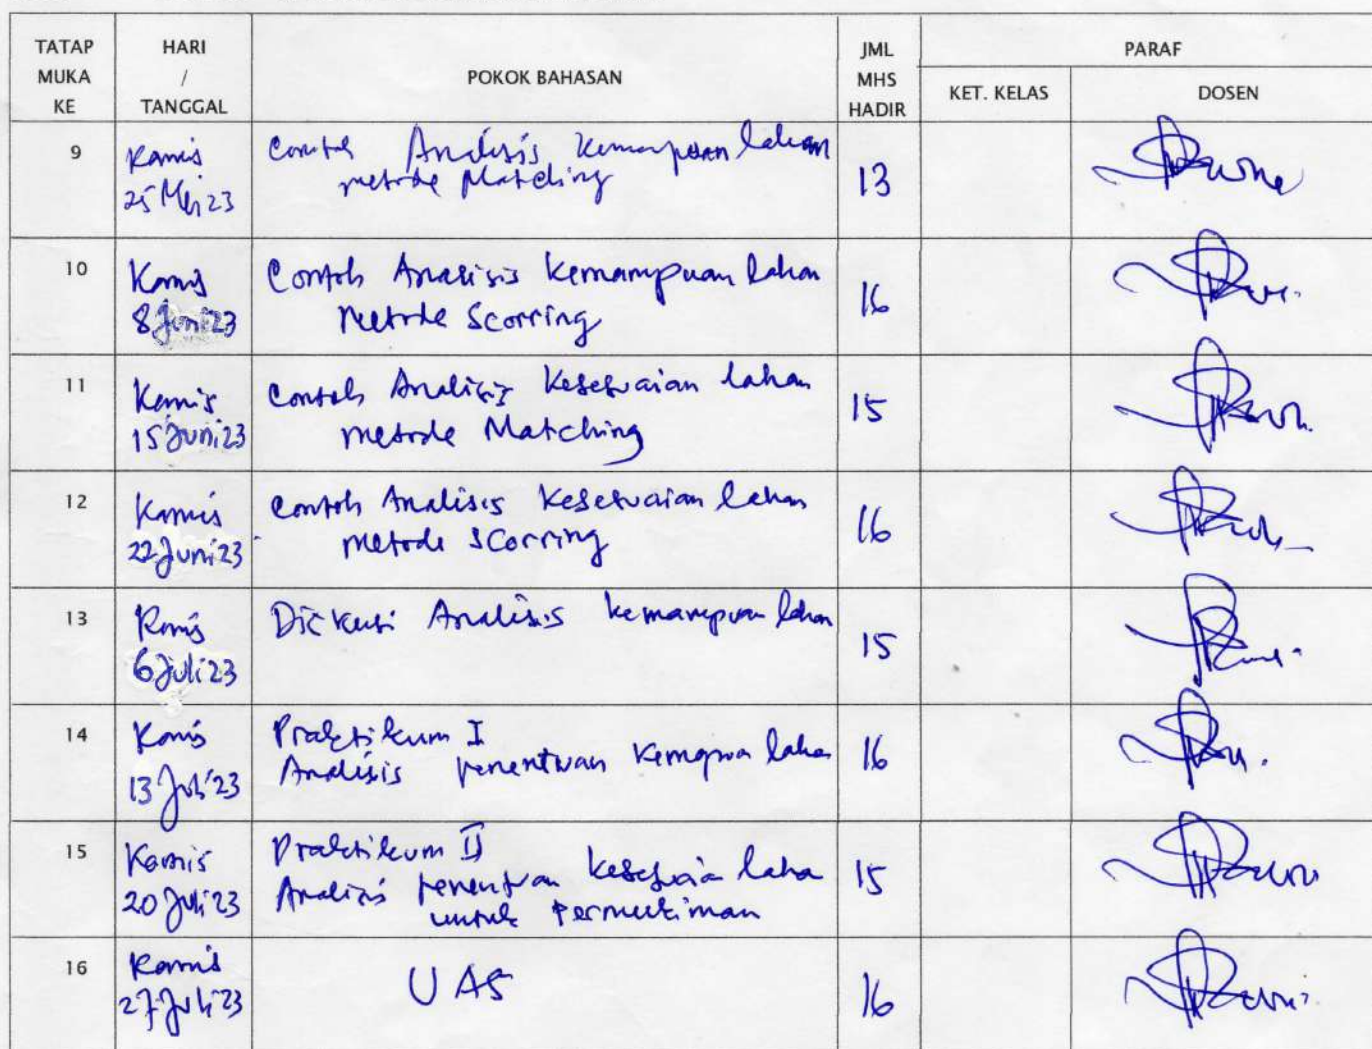 TATAP MUKA KE
HARI / TANGGAL
POKOK BAHASAN
JML MHS HADIR
PARAF
KET. KELAS
DOSEN
9
Kamis
25 Mei 23
Contoh Analisis Kemampuan lahan
metode Matching
13
10
Kamis
8 Juni 23
Contoh Analisis Kemampuan lahan
Metode Scorring
16
11
Kamis
15 Juni 23
Contoh Analisis Kesesuaian lahan
metode Matching
15
12
Kamis
22 Juni 23
Contoh Analisis Kesesuaian lahan
metode Scorring
16
13
Kamis
6 Juli 23
Diskusi Analisis kemampuan lahan
15
14
Kamis
13 Juli 23
Praktikum I
Analisis penentuan lahan
16
15
Kamis
20 Juli 23
Praktikum II
Analisis penentuan
untuk Permukiman
15
16
Kamis
27 Juli 23
UAS
16